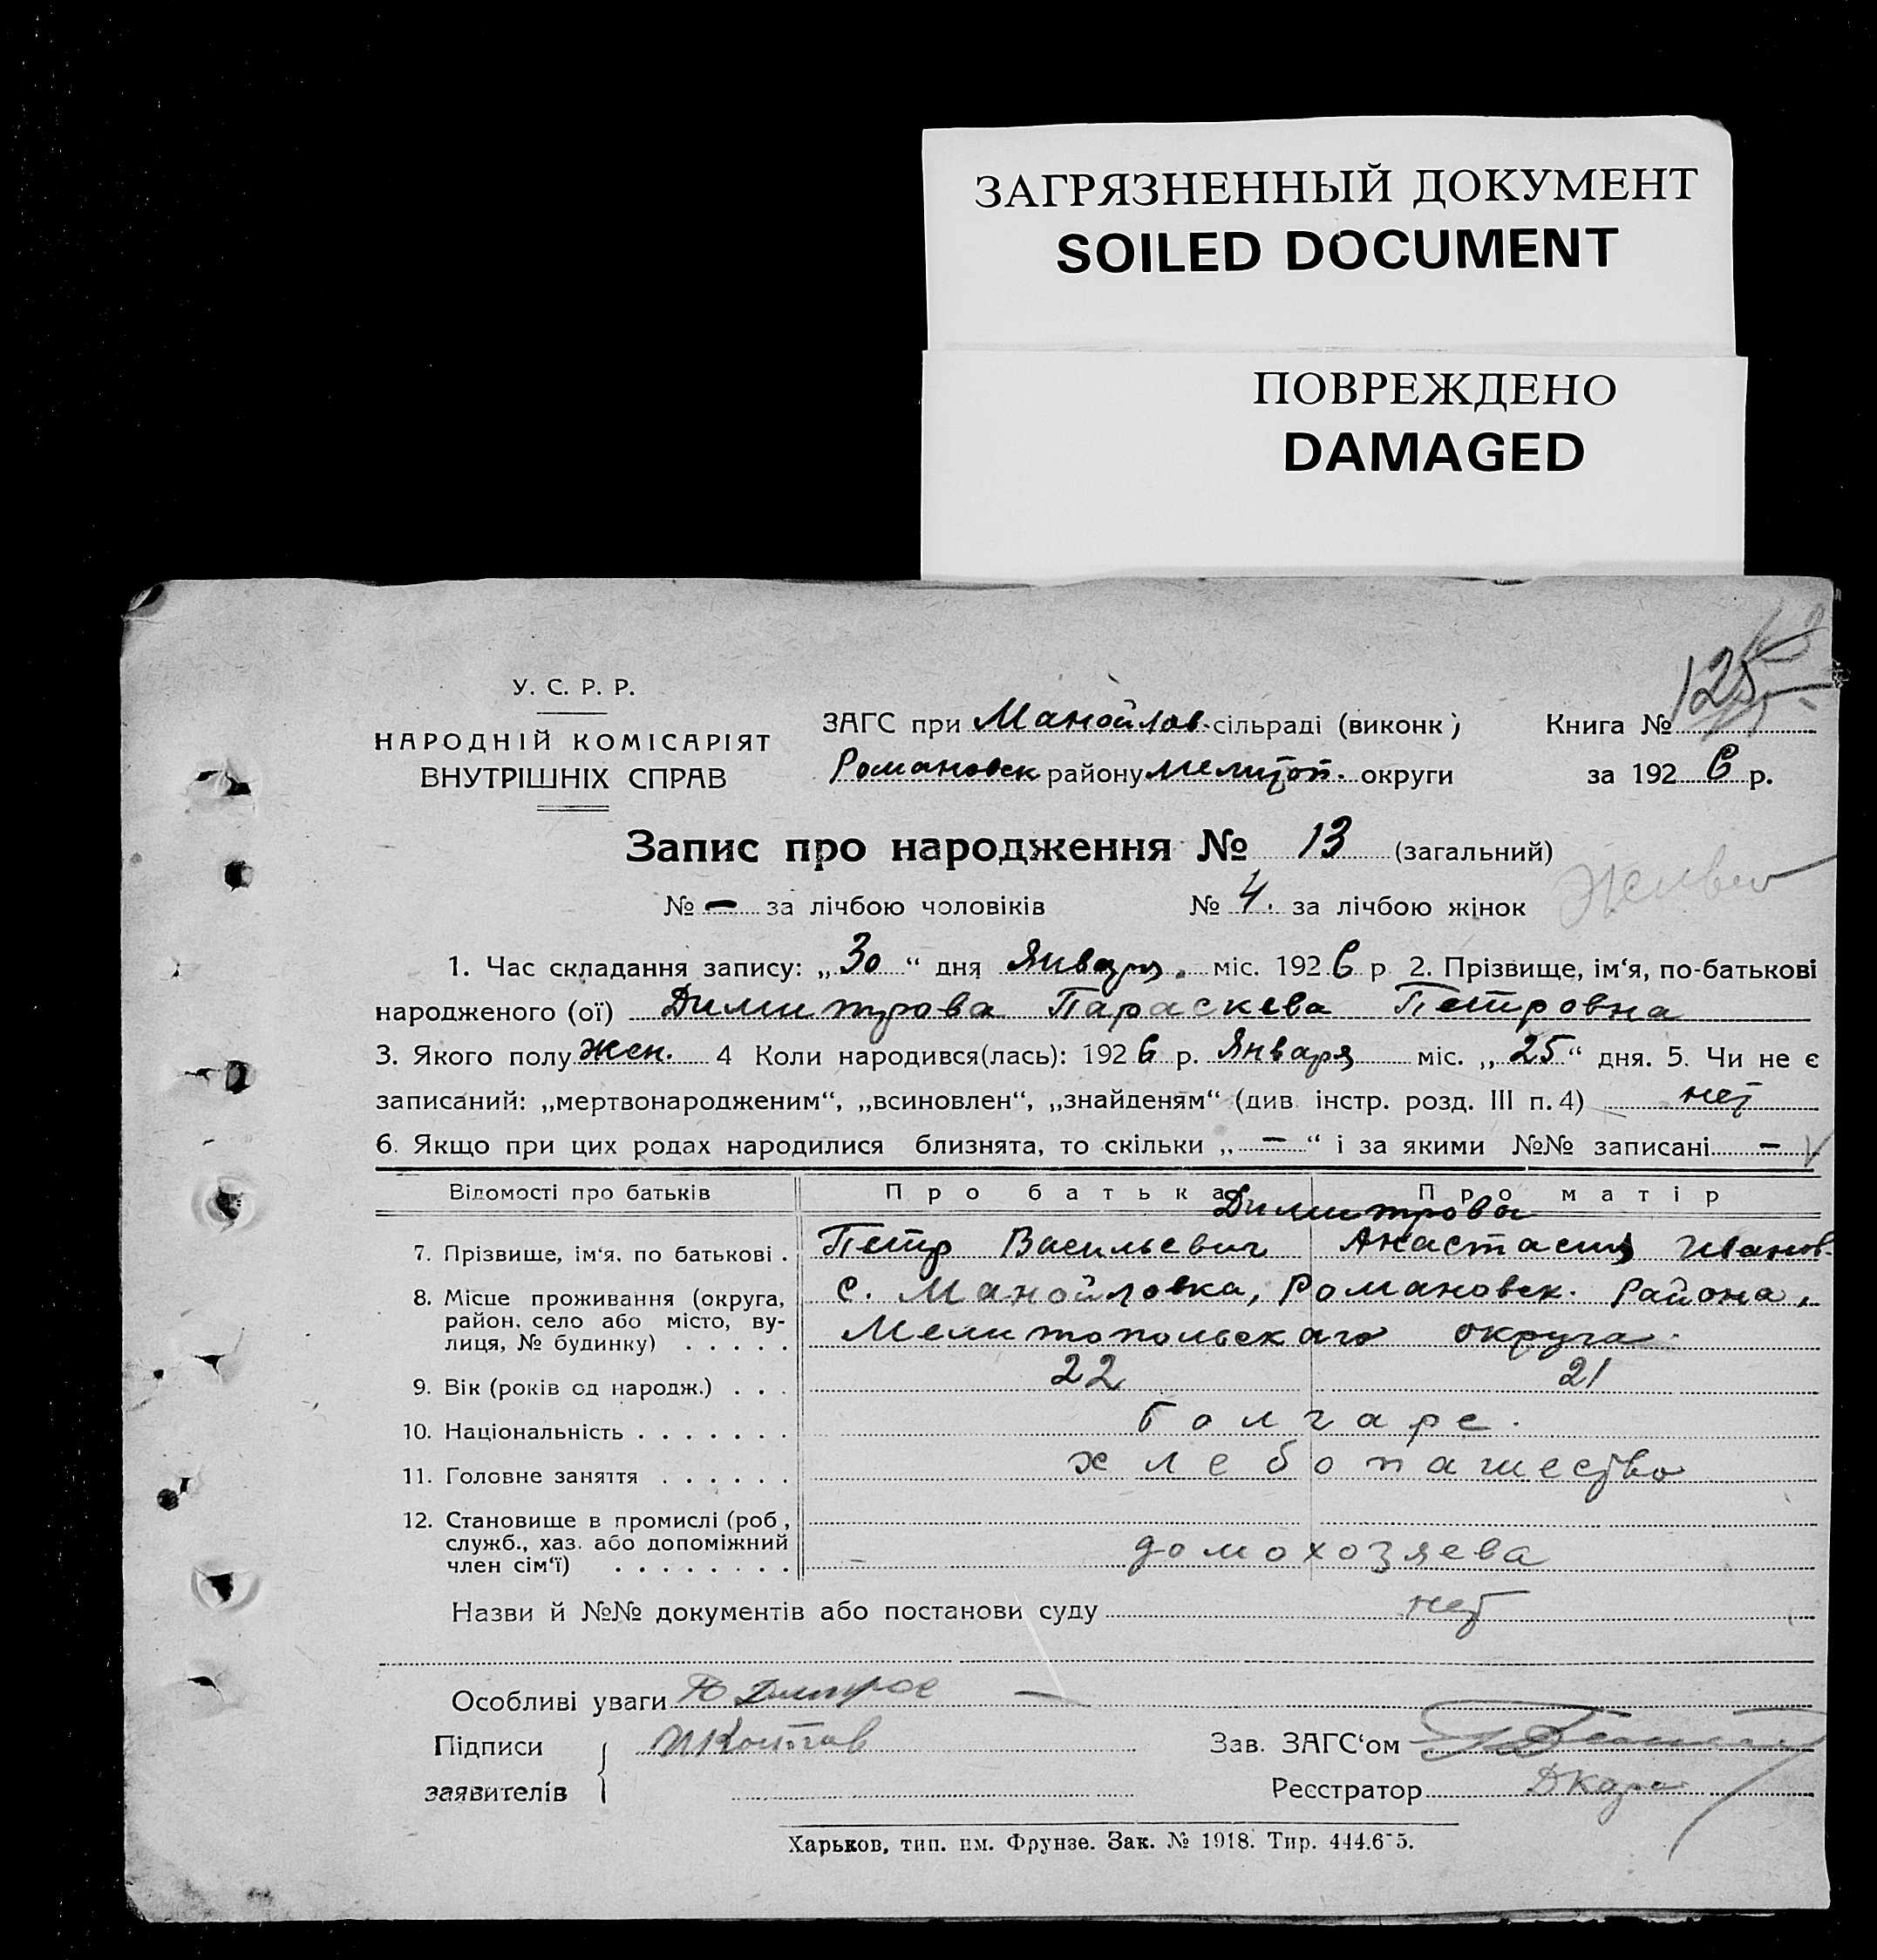 ЗАГРЯЗНЕННЫЙ ДОКУМЕНТ
SOILED DOCUMENT
ПОВРЕЖДЕНО
DAMAGED
125
У. С. Р. Р.
НАРОДНІЙ КОМІСАРІЯТ
ВНУТРІШНІХ СПРАВ
ЗАГС при Манойлов. сільраді (виконк) Книга №
Романовск району Мелитоп. округи за 1926 р.
Запис про народження № 13 (загальний)
№ – за лічбою чоловіків № 4. за лічбою жінок
1. Час складання запису: „30“ дня Января. міс. 1926 р 2. Прізвище, ім‘я, по-батькові
народженого (ої) Димитрова Параскева Петровна
3. Якого полу жен. 4 Коли народився(лась): 1926 р. Января міс. „25“ дня. 5. Чи не є
записаний: „мертвонародженим“, „всиновлен“, „знайденям“ (див. інстр. розд. III п. 4) нет
6. Якщо при цих родах народилися близнята, то скільки „–“ і за якими №№ записані –
Відомості про батьків Про батька Про матір
Димитрова
7. Прізвище, ім‘я, по батькові . Петр Васильевич Анастасия Иванов-
8. Місце проживання (округа, с. Манойловка, Романовск. Района,
район, село або місто, ву-
лиця, № будинку) . . . . . Мелитопольскаго округа.
9. Вік (років од народж.) . . . 22 21
10. Національність . . . . . . . болгаре.
11. Головне заняття . . . . . . хлебопашество
12. Становище в промислі (роб.,
служб., хаз. або допоміжний
член сім‘ї) . . . . . . . . домохозяева
Назви й №№ документів або постанови суду нет
Особливі уваги
Підписи Зав. ЗАГС‘ом
заявителів Реєстратор
Харьков, тип. им. Фрунзе. Зак. № 1918. Тир. 444.6